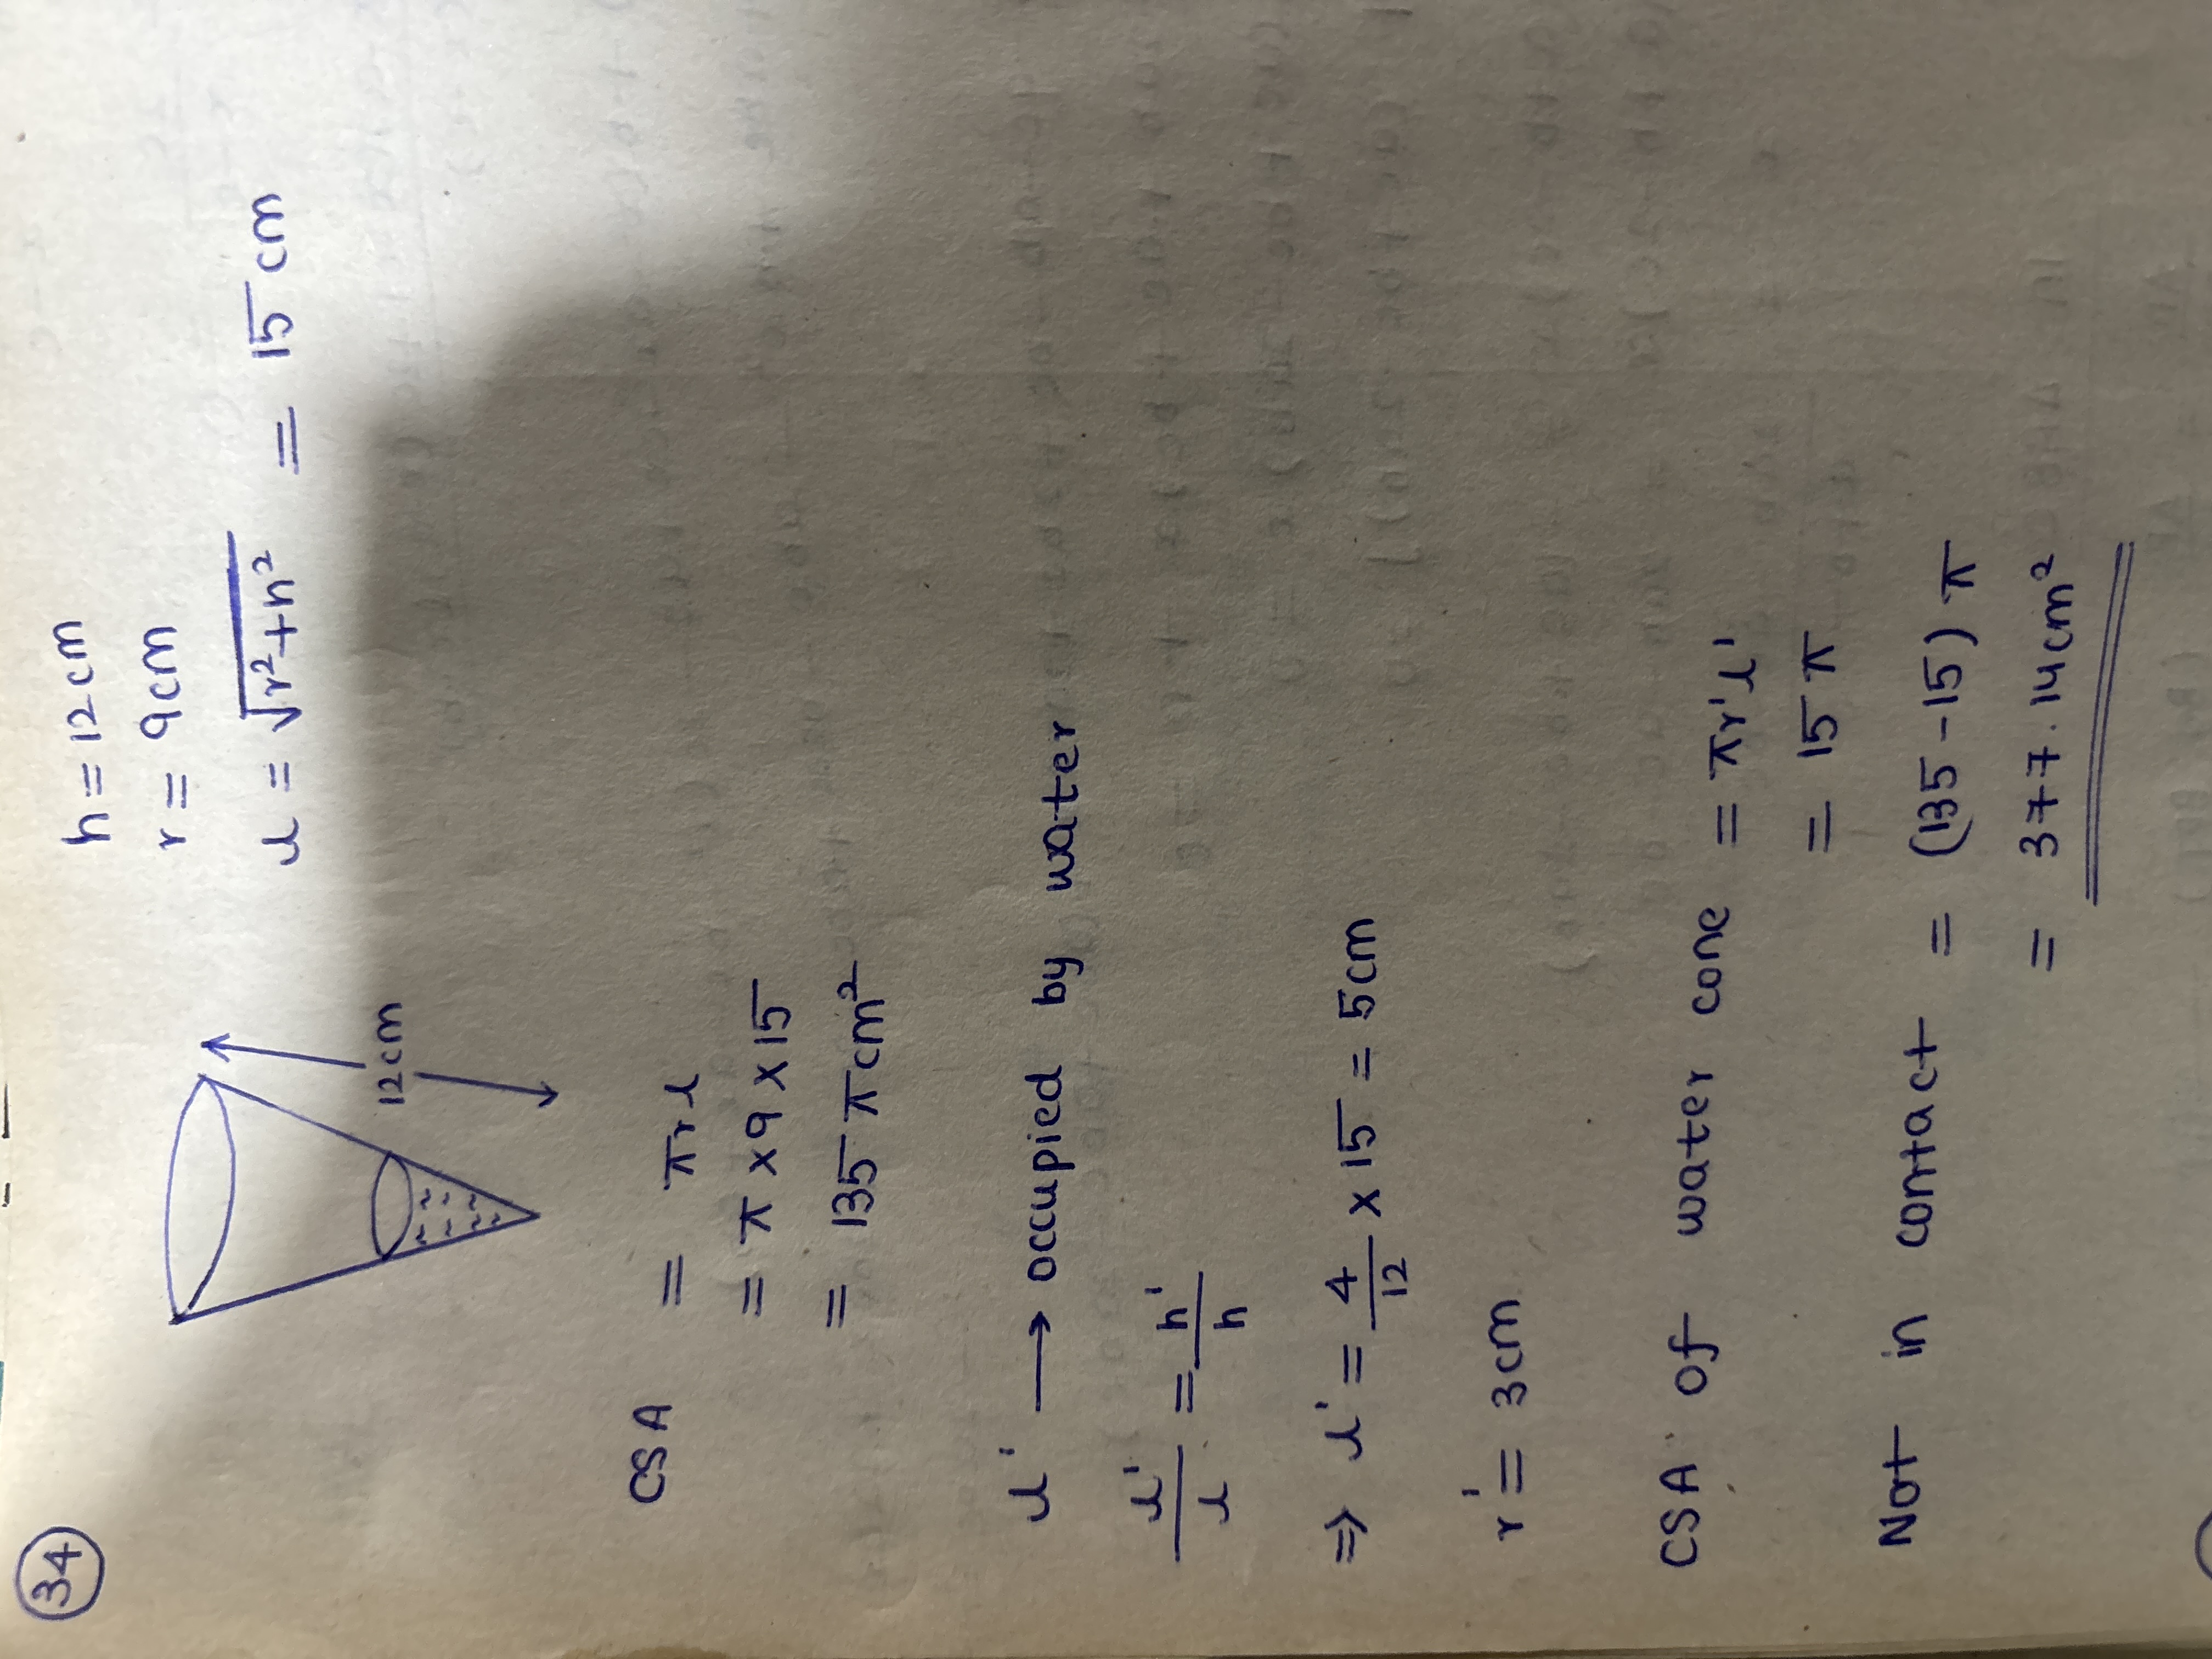 34
h = 12 cm
r = 9 cm
l = √r²+h² = 15 cm
12 cm
CSA = πrl
= π x 9 x 15
= 135 π cm²
l' → occupied by water
l'/l = h'/h
⇒ l' = 4/12 x 15 = 5 cm
r' = 3 cm
CSA of water cone = πr'l'
= 15 π
Not in contact = (135 - 15) π
= 377.14 cm²